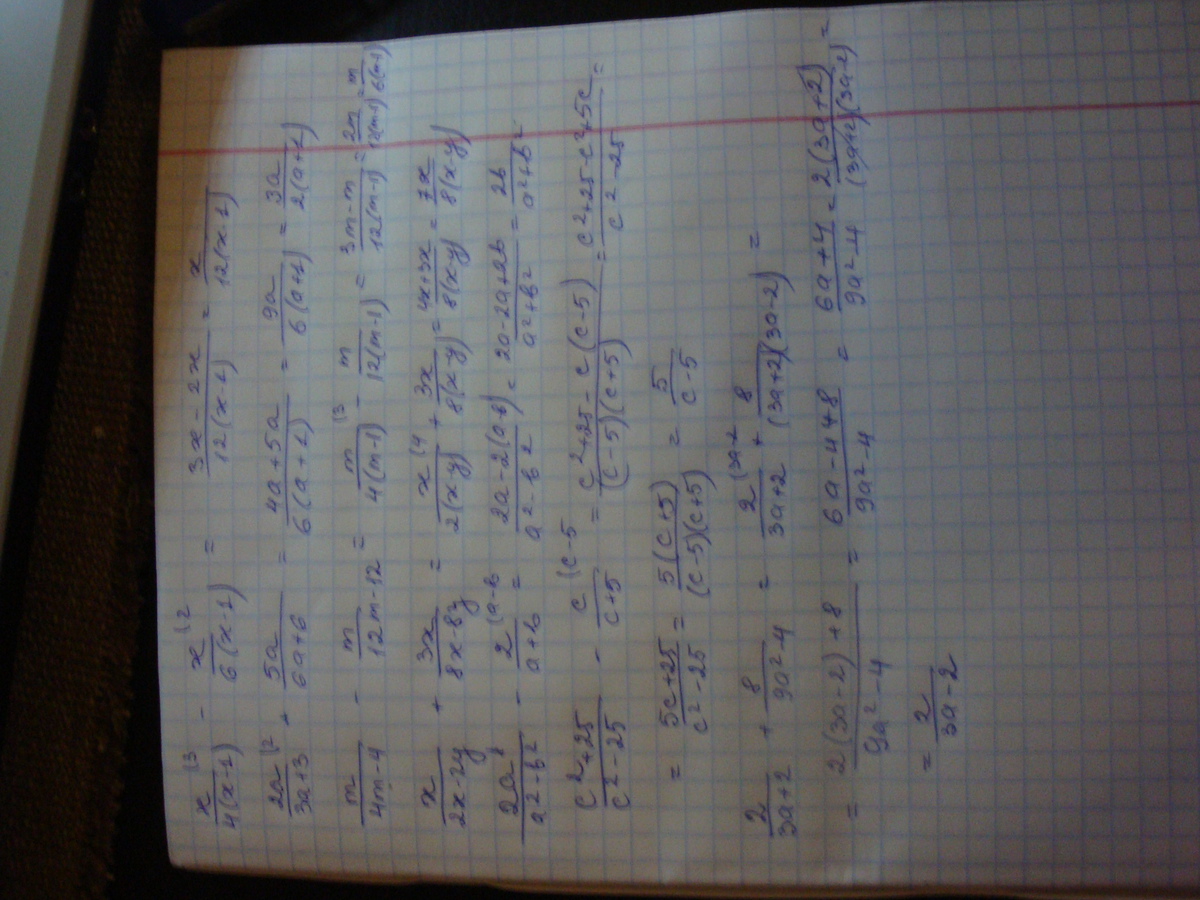 x⁽³/4(x-1) - x⁽²/6(x-1) = 3x-2x/12(x-1) = x/12(x-1)
2a⁽²/3a+3 + 5a/6a+6 = 4a+5a/6(a+1) = 9a/6(a+1) = 3a/2(a+1)
m/4m-4 - m/12m-12 = m⁽³/4(m-1) - m/12(m-1) = 3m-m/12(m-1) = 2m/12(m-1) = m/6(m-1)
x/2x-2y + 3x/8x-8y = x⁽⁴/2(x-y) + 3x/8(x-y) = 4x+3x/8(x-y) = 7x/8(x-y)
2a/a²-b² - 2⁽ᵃ⁻ᵇ/a+b = 2a-2(a-b)/a²-b² = 2a-2a+2b/a²+b² = 2b/a²+b²
c²+25/c²-25 - c⁽ᶜ⁻⁵/c+5 = c²+25-c(c-5)/(c-5)(c+5) = c²+25-c²+5c/c²-25 =
= 5c+25/c²-25 = 5(c+5)/(c-5)(c+5) = 5/c-5
2/3a+2 + 8/9a²-4 = 2⁽³ᵃ⁻²/3a+2 + 8/(3a+2)(3a-2) =
= 2(3a-2)+8/9a²-4 = 6a-4+8/9a²-4 = 6a+4/9a²-4 = 2(3a+2)/(3a+2)(3a-2) =
= 2/3a-2